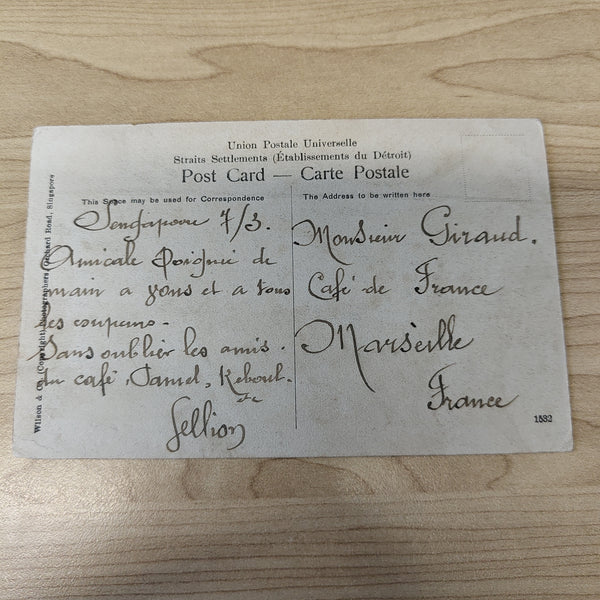 Union Postale Universelle
Straits Settlements (Établissements du Détroit)
Post Card — Carte Postale
This Space may be used for Correspondence
The Address to be written here
Wilson & Co. (Copyright) Photographers, Orchard Road, Singapore
Sengapoore 7/3.
Amicale Poignée de
main a vous et a tous
les copains.
Sans oublier les amis.
du café, Daniel, Reboul.
etc
Monsieur Giraud.
Café de France
Marseille
France
1532